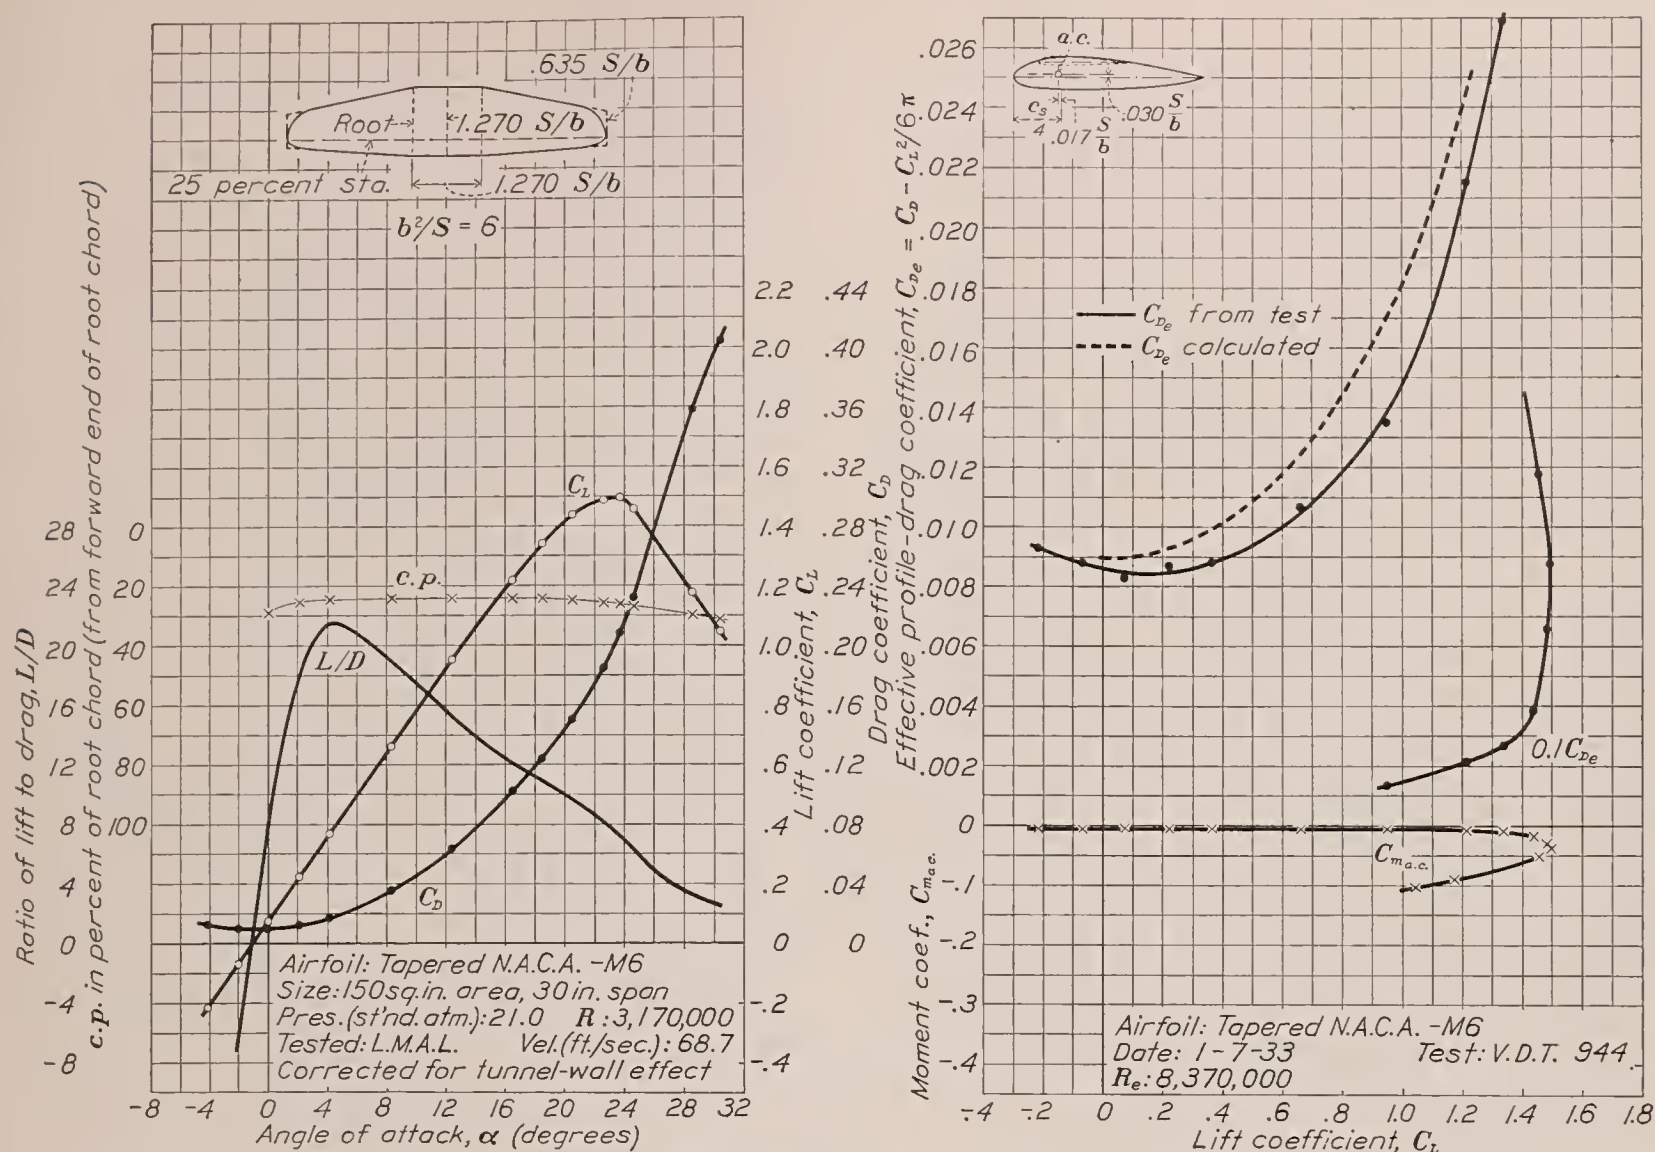 .635 S/b
Root
1.270 S/b
25 percent sta.
1.270 S/b
b²/S = 6
Ratio of lift to drag, L/D
c.p. in percent of root chord (from forward end of root chord)
28
24
20
16
12
8
4
0
-4
-8
0
20
40
60
80
100
C_L
c.p.
L/D
C_D
2.2
2.0
1.8
1.6
1.4
1.2
1.0
.8
.6
.4
.2
0
-.2
-.4
Lift coefficient, C_L
.44
.40
.36
.32
.28
.24
.20
.16
.12
.08
.04
0
Drag coefficient, C_D
Airfoil: Tapered N.A.C.A. -M6
Size: 150 sq. in. area, 30 in. span
Pres. (st'nd. atm.): 21.0 R: 3,170,000
Tested: L.M.A.L. Vel. (ft./sec.): 68.7
Corrected for tunnel-wall effect
-8 -4 0 4 8 12 16 20 24 28 32
Angle of attack, α (degrees)
Effective profile-drag coefficient, C_De = C_D - C_L²/6π
.026
.024
.022
.020
.018
.016
.014
.012
.010
.008
.006
.004
.002
0
-.1
-.2
-.3
-.4
Moment coef., C_m a.c.
a.c.
c_s
4
.017 S/b
.030 S/b
C_De from test
C_De calculated
0.1 C_De
C_m a.c.
Airfoil: Tapered N.A.C.A. -M6
Date: 1-7-33 Test: V.D.T. 944
R_e: 8,370,000
-.4 -.2 0 .2 .4 .6 .8 1.0 1.2 1.4 1.6 1.8
Lift coefficient, C_L